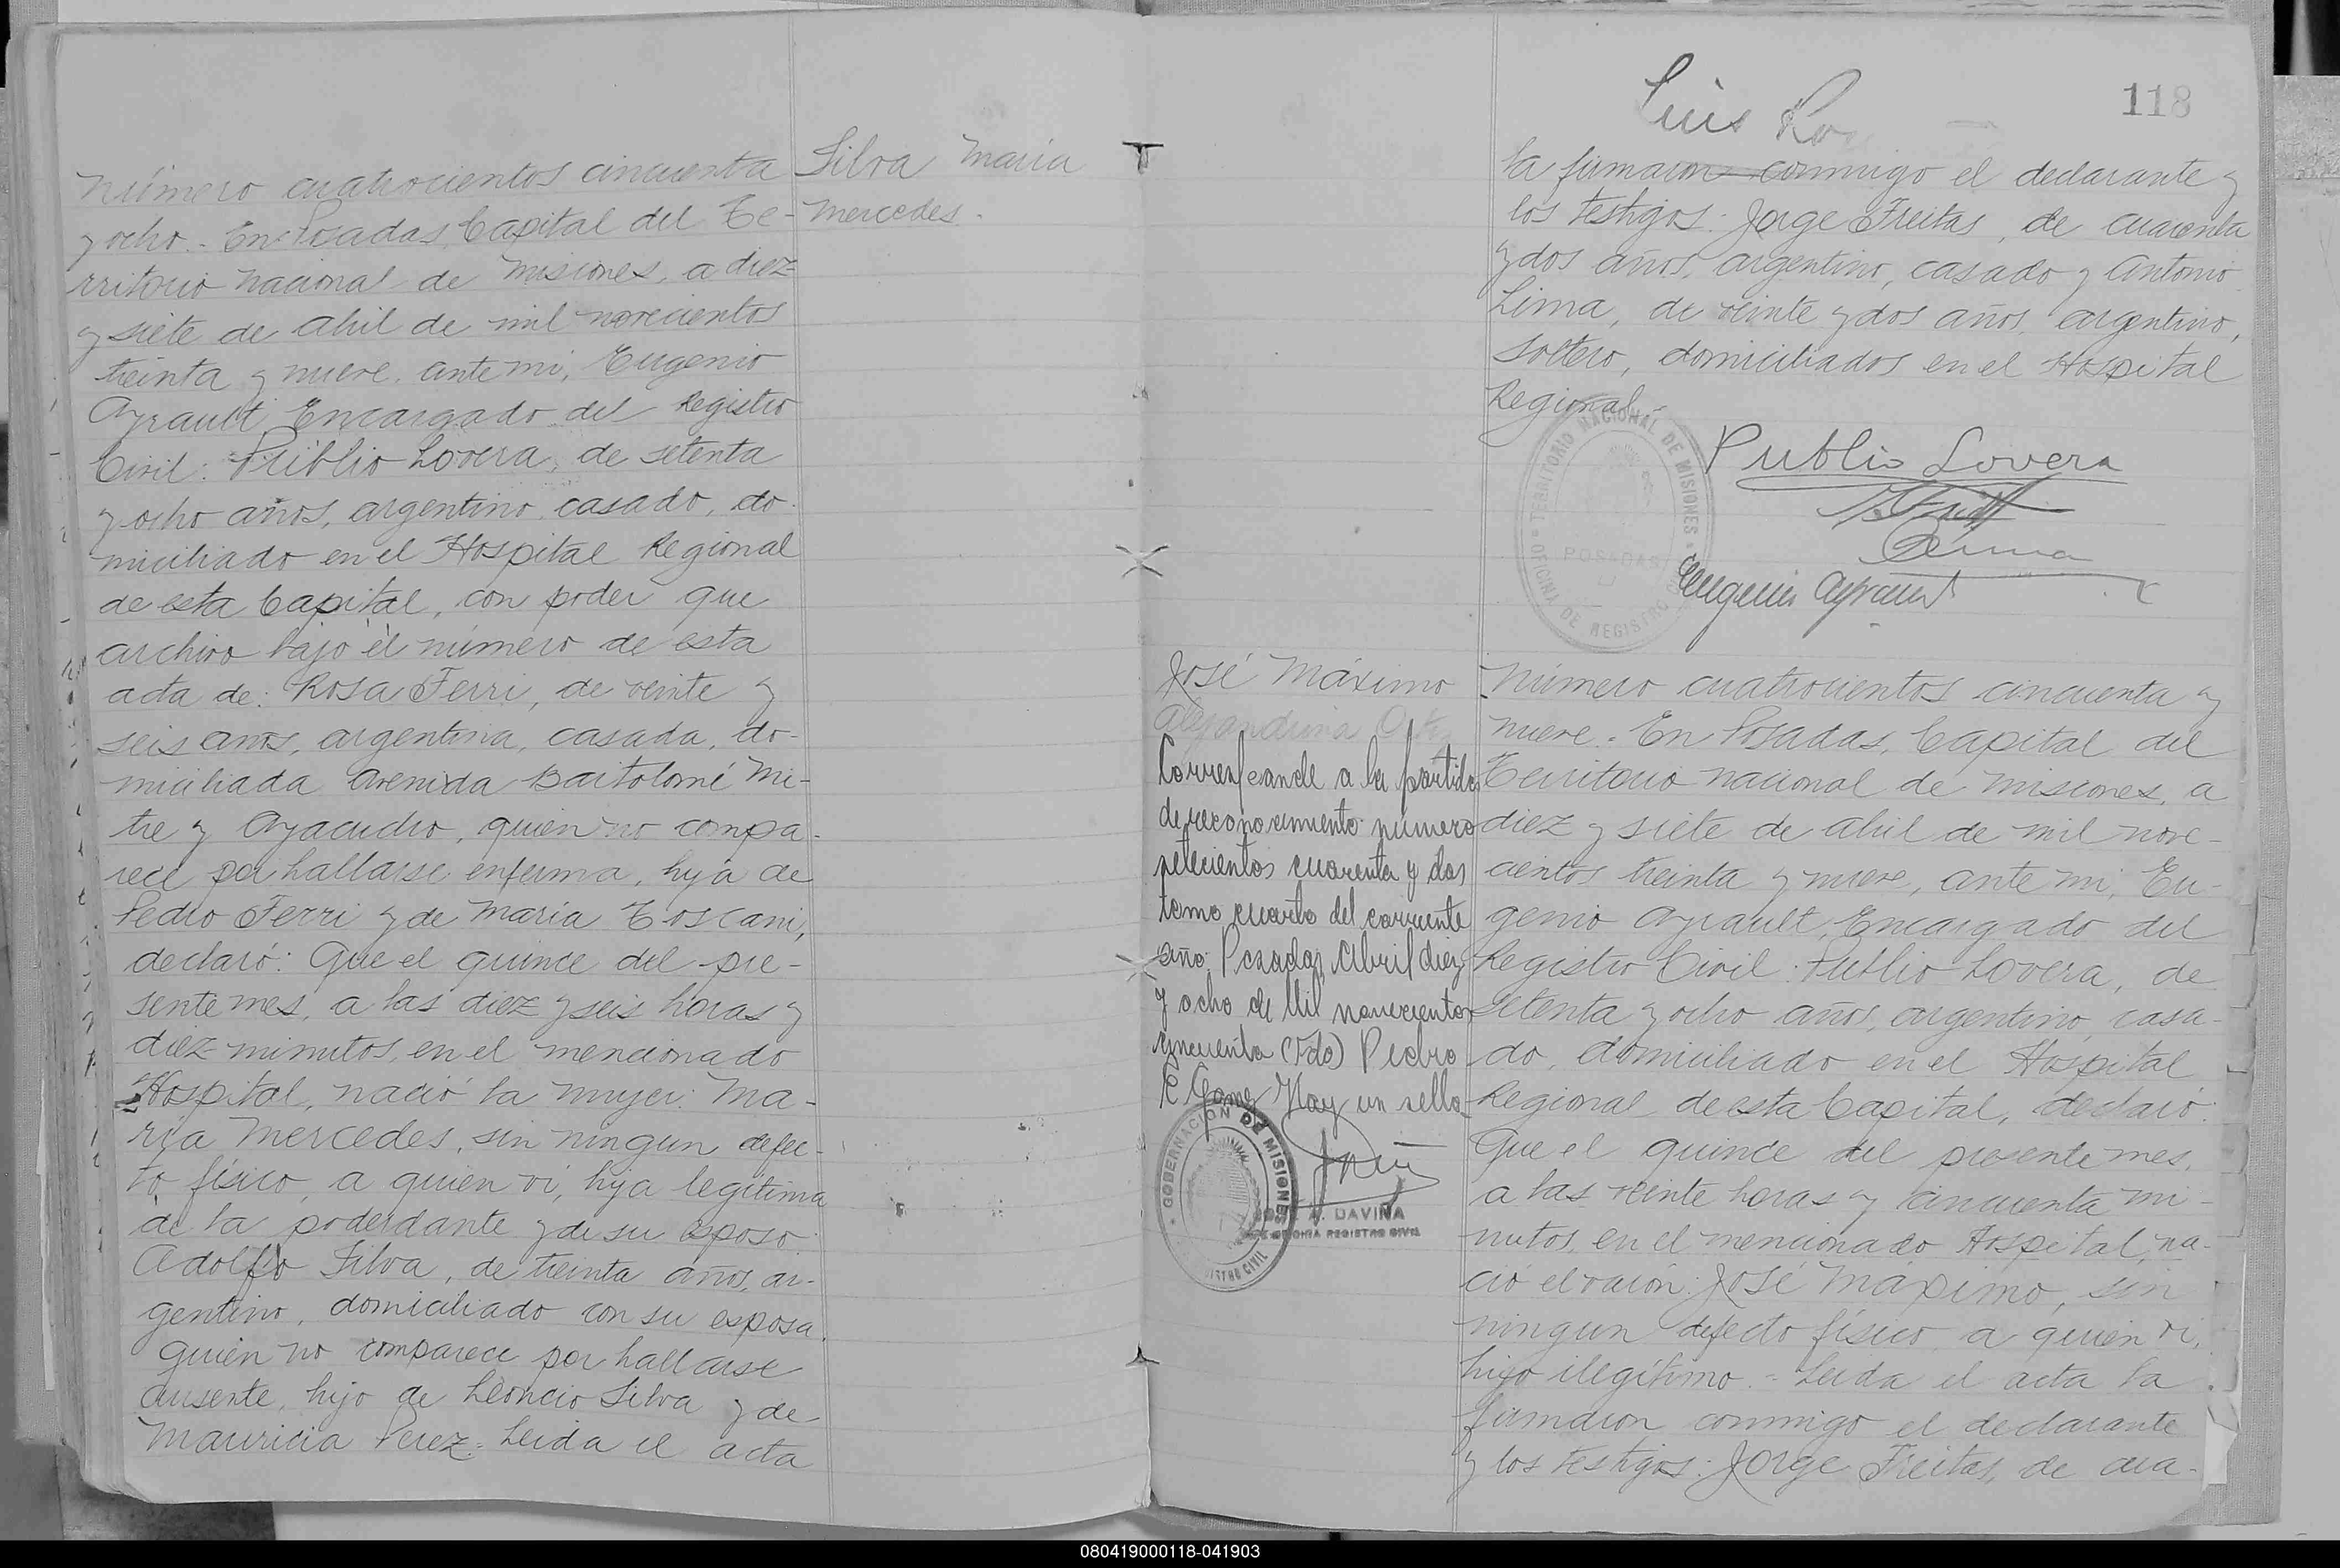 Número cuatrocientos cincuenta
y ocho.- En Posadas, Capital del Te-
rritorio nacional de Misiones, a diez
y siete de abril de mil novecientos
treinta y nueve, ante mi, Eugenio
Ayrault Encargado del Registro
Civil: Publio Lovera, de setenta
y ocho años, argentino, casado, do-
miciliado en el Hospital Regional
de esta Capital, con poder que
archivo bajo el número de esta
acta de: Rosa Ferri, de veinte y
seis años, argentina, casada, do-
miciliada Avenida Bartolomé Mi-
tre y Ayacucho, quien no compa-
rece por hallarse enferma, hija de
Pedro Ferri y de María Toscani,
declaró: Que el quince del pre-
sente mes, a las diez y seis horas y
diez minutos, en el mencionado
Hospital, nació la mujer: Ma-
ría Mercedes, sin ningun defec-
to físico, a quien vi, hija legítima
de la poderdante y de su esposo
Adolfo Silva, de treinta años, ar-
gentino, domiciliado con su esposa,
quien no comparece por hallarse
ausente, hijo de Leoncio Silva y de
Mauricia Perez.- Leida el acta
Silva María
Mercedes.
118
Luis
la firmaron conmigo el declarante y
los testigos: Jorge Freitas, de cuarenta
y dos años, argentino, casado y Antonio
Lima, de veinte y dos años, argentino,
soltero, domiciliados en el Hospital
Regional.-
TERRITORIO NACIONAL DE MISIONES
POSADAS
OFICINA DE REGISTRO
Publio Lovera
Eugenio Ayrault
José Máximo
Alejandrina
Corresponde a la partida
de reconocimiento número
setecientos cuarenta y dos
tomo cuarto del corriente
año. Posadas, Abril diez
y ocho de Mil novecientos
cincuenta (Fdo) Pedro
Hay un sello
GOBERNACION DE MISIONES
A. DAVIÑA
REGISTRO CIVIL
Número cuatrocientos cincuenta y
nueve.- En Posadas, Capital del
Territorio nacional de Misiones, a
diez y siete de abril de mil nove-
cientos treinta y nueve, ante mi, Eu-
genio Ayrault, Encargado del
Registro Civil: Publio Lovera, de
setenta y ocho años, argentino, casa-
do, domiciliado en el Hospital
Regional de esta Capital, declaró:
Que el quince del presente mes,
a las veinte horas y cincuenta mi-
nutos, en el mencionado Hospital, na-
ció el varón: José Máximo, sin
ningun defecto físico, a quien vi,
hijo ilegítimo.- Leida el acta la
firmaron conmigo el declarante
y los testigos: Jorge Freitas, de cua-
080419000118-041903